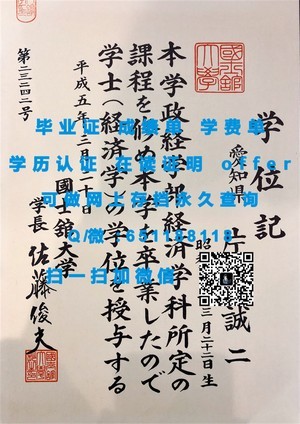 学位記
愛知県
誠二
三月二十二日生
本学政経学部経済学科所定の
課程を修め本学を卒業したので
学士(経済学)の学位を授与する
平成五年三月二十日
國士舘大学
学長 佐藤俊夫
第二三二四二号
毕业证 成绩单 学费单
学历认证 在读证明 offer
可做网上存档永久查询
Q/微
扫一扫加微信